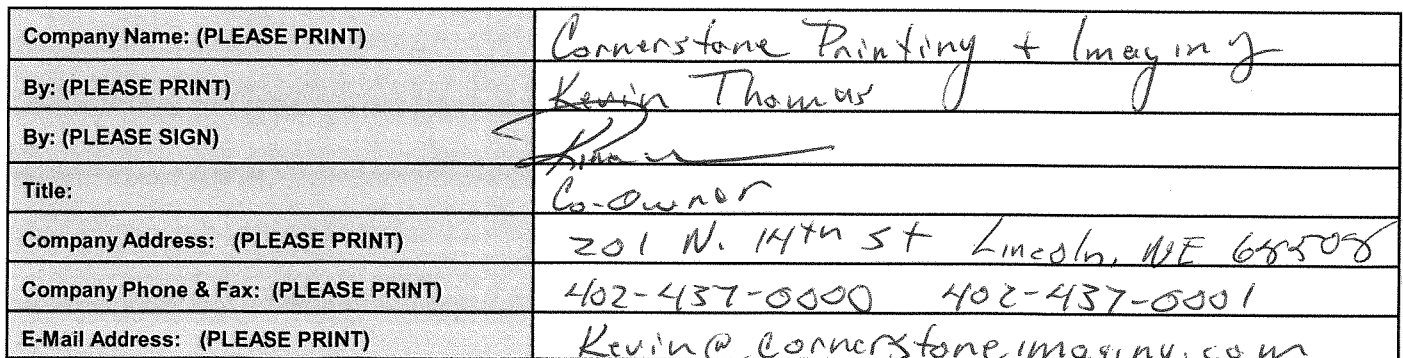 Company Name: (PLEASE PRINT) Cornerstone Printing + Imaging
By: (PLEASE PRINT) Kevin Thomas
By: (PLEASE SIGN)
Title: Co-Owner
Company Address: (PLEASE PRINT) 201 N. 14th St Lincoln, NE 68508
Company Phone & Fax: (PLEASE PRINT) 402-437-0000 402-437-0001
E-Mail Address: (PLEASE PRINT) Kevin@cornerstoneimaging.com